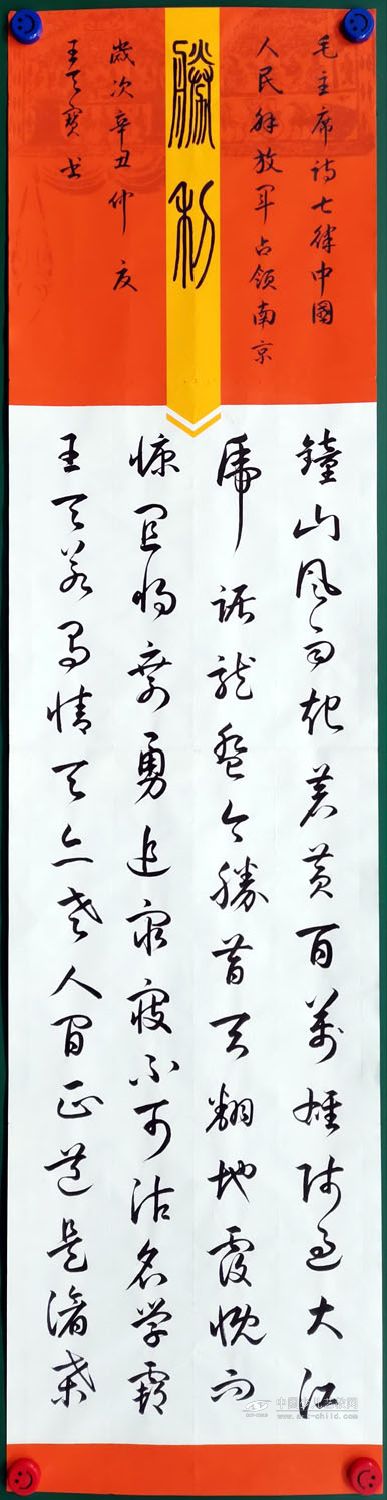 毛主席詩七律中國
人民解放军占领南京
勝利
歲次辛丑仲夏
王天寶书
鐘山风雨起苍黄百萬雄师过大江
虎踞龙盘今勝昔天翻地覆慨而
慷宜将剩勇追穷寇不可沽名学霸
王天若有情天亦老人间正道是滄桑
www.art-child.com